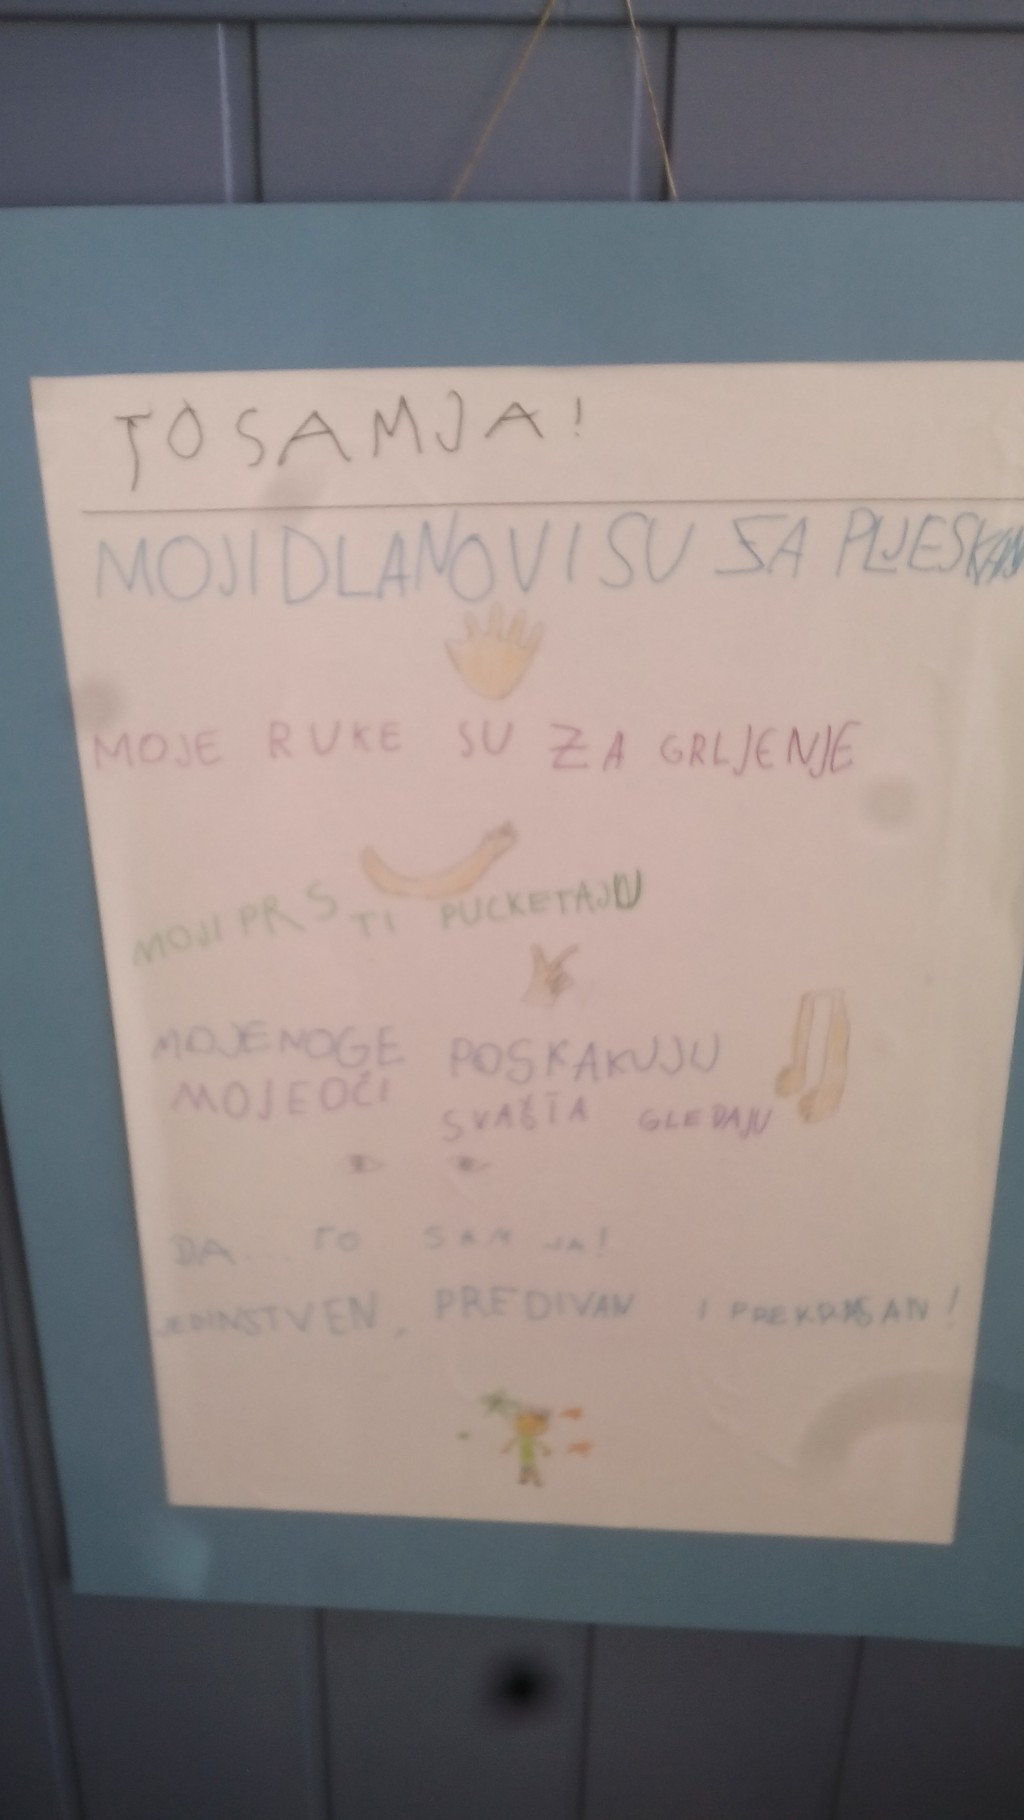 TO SAM JA!
MOJI DLANOVI SU ZA PLJESKAN
MOJE RUKE SU ZA GRLJENJE
MOJI PRSTI PUCKETAJU
MOJE NOGE POSKAKUJU
MOJE OČI SVAŠTA GLEDAJU
DA... TO SAM JA!
JEDINSTVEN, PREDIVAN I PREKRASAN!